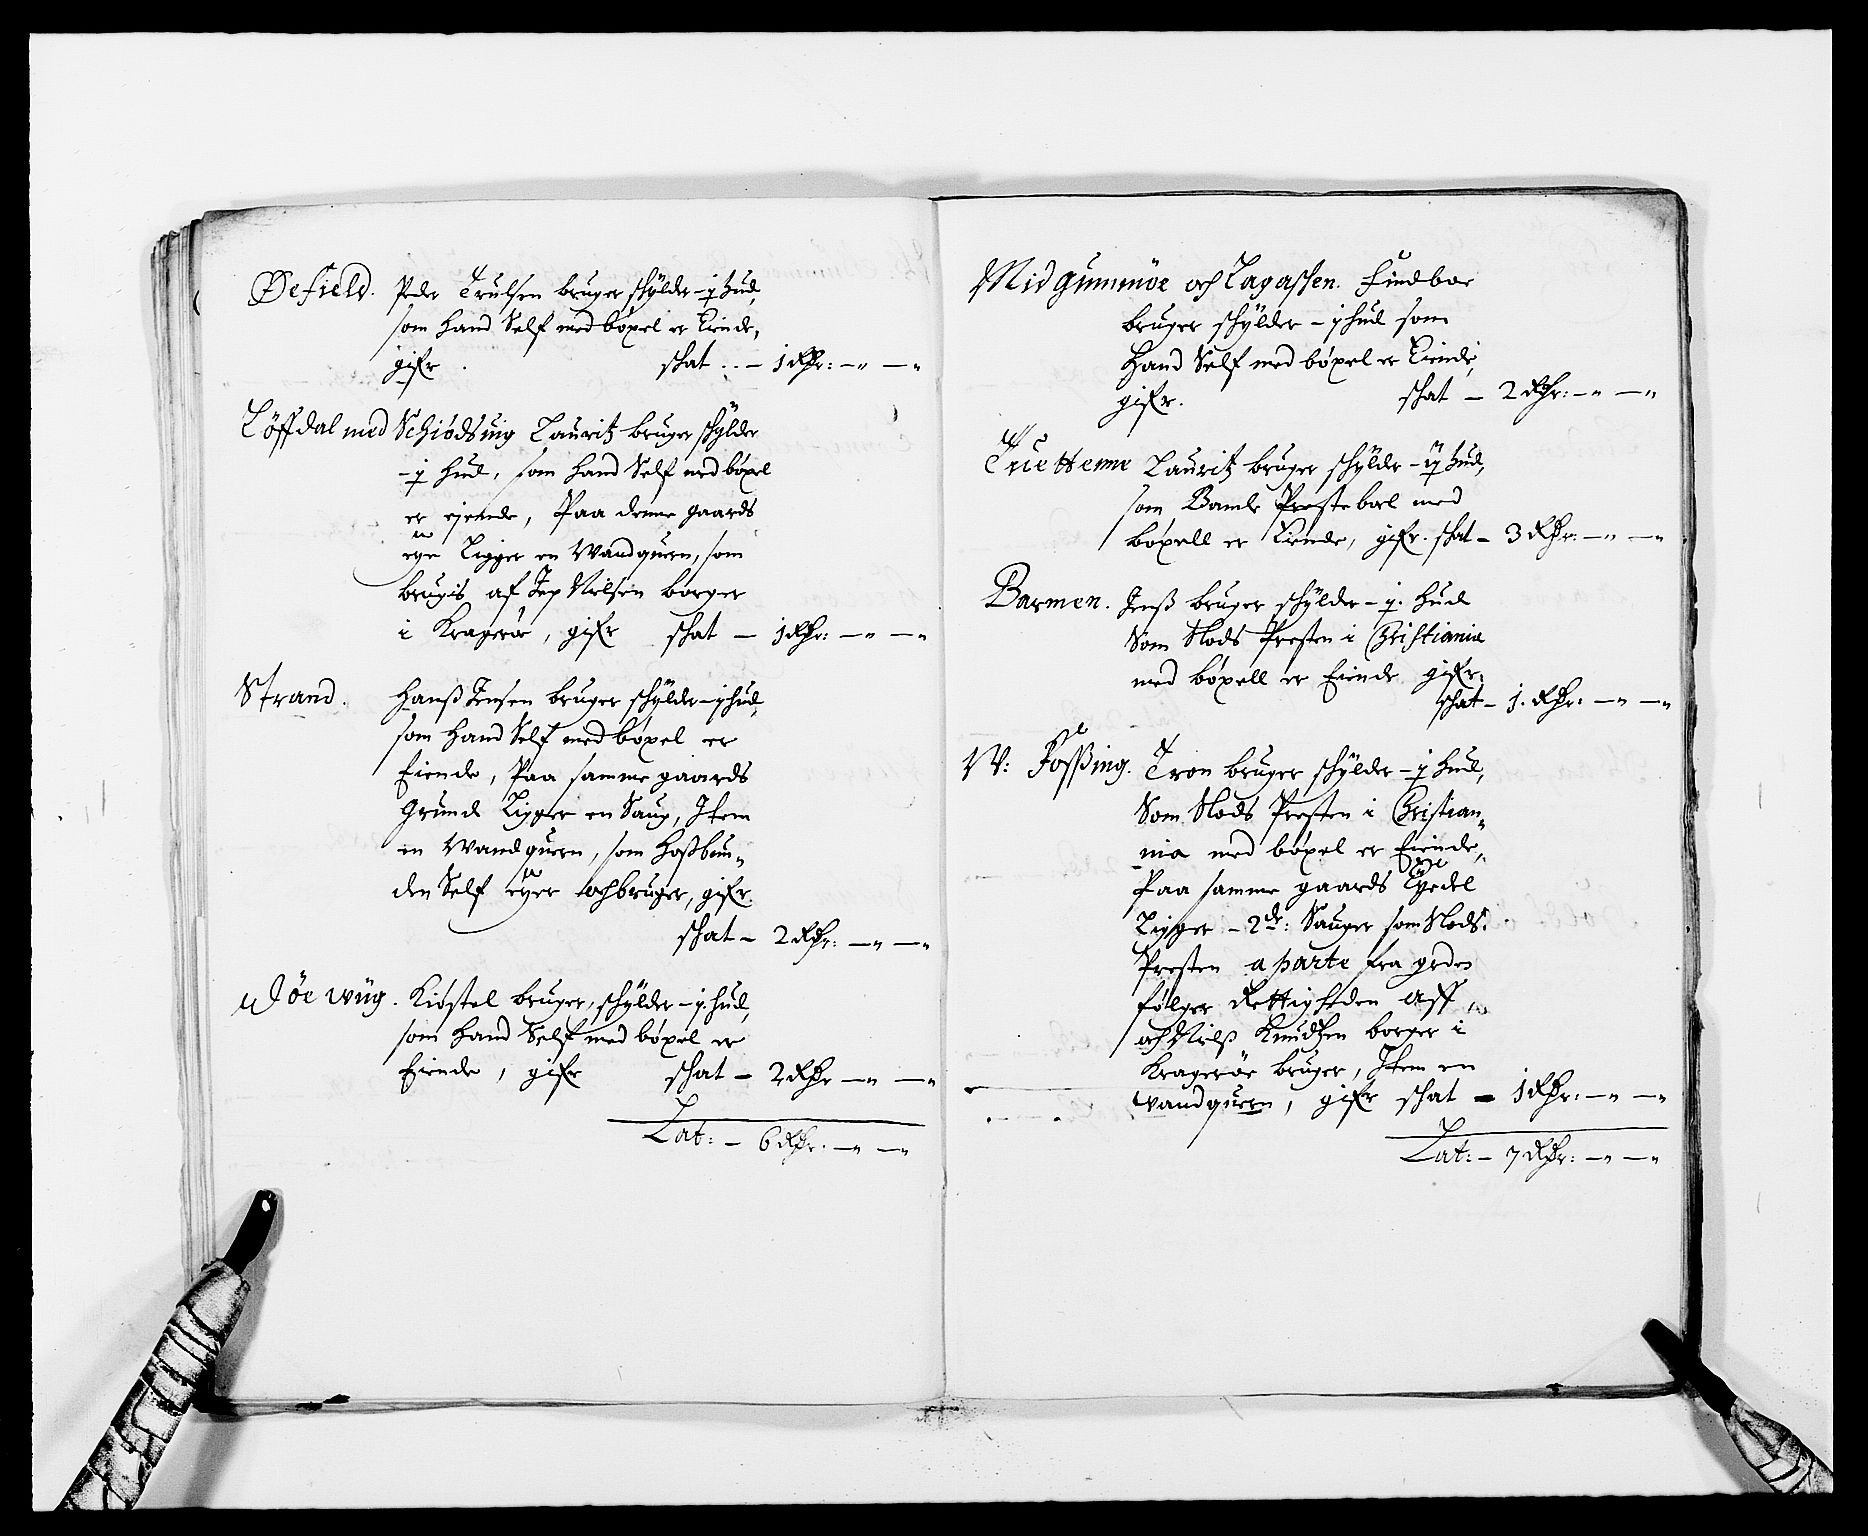 Øefield. Peder Trulsen bruger schÿlder - ꝟ hud,
som hand Self med bøxel er Eiende,
gifr schat .. - 1 Rdr: -„ -„
Löffdal med Schiödsuig Lauritz bruger schÿlder
- ꝟ hud, som hand Self med böxel
er ejende, Paa denne gaards
eye Ligger en Wandquern, som
brugis af Jep Nielsen borger
i Kragerøe, gifr schat - 1 Rdr: -„ -„
Strand. Hanß Jensen bruger schÿlder - j hud,
som hand Self med bøxel er
Eiende, Paa samme gaards
Grund Ligger en Saug, Item
en Wandquern, som Hoßbun„
den Self eÿer och bruger, gifr.
schat - 2 Rdr: -„ -„
Döe wüg. Kiöstel bruger, schÿlder - j. hud,
som hand Self med böxel er
Eiende, gifr schat - 2 Rdr -„ -„
Lat: - 6 Rdr: -„ -„
Mid gummöe och Lagassen. Findboe
bruger schÿlder - j hud som
hand Self med böxel er Eiende,
gifr. schat - 2 Rdr: -„ -„
Tuettenne Lauritz bruger schÿlder - ÿ hud,
som Bamle Presteboel med
böxell er Eiende, gifr. schat - 3 Rdr: -„ -„
Barmen. Jenß bruger schÿlder - ꝟ. hud
Som Slods Presten i Christiania
med böxell er Eiende gifr:
schat - 1. Rdr: -„ -„
W: Foßing. Tron bruger schÿlder - j hud,
Som Slods Presten i Christian„
nia med böxel er Eiende,
Paa samme gaards
Ligger - 2de: Sauger som Slods
Presten aparte fra garden
fölger Rettigheden aff,
och Nielß Knudsen borger i
Kragerøe bruger, Item en
wandquern, gifr schat - 1 Rdr: -„ -„
Lat: - 7 Rdr: -„ -„